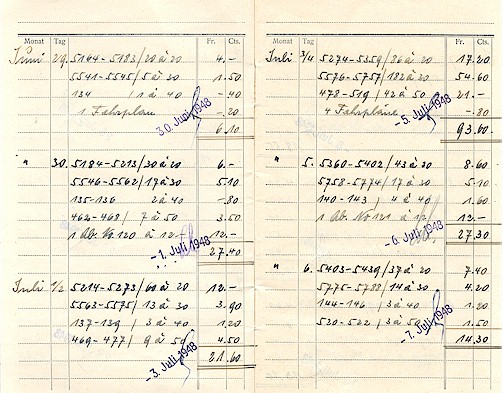 Monat Tag Fr. Cts.
Juni 29. 5164-5183/20 à 20 4.-
5541-5545/5 à 30 1.50
134 /1 à 40 -.40
1 Fahrplan -.20
30. Juni 1948
6.10
" 30. 5184-5213/30 à 20 6.-
5546-5562/17 à 30 5.10
135-136 2 à 40 -.80
462-468/ 7 à 50 3.50
1 Ab. No 120 à 12.- 12.-
-1. Juli 1948
27.40
Juli 1/2 5214-5273/60 à 20 12.-
5563-5575/13 à 30 3.90
137-139/ 3 à 40 1.20
469-477/ 9 à 50 4.50
-3. Juli 1948
21.60
Monat Tag Fr. Cts.
Juli 3/4 5274-5359/86 à 20 17.20
5576-5757/182 à 30 54.60
478-519/42 à 50 21.-
4 Fahrpläne -.80
-5. Juli 1948
93.60
" 5. 5360-5402/43 à 20 8.60
5758-5774/17 à 30 5.10
140-143/ 4 à 40 1.60
1 Ab. No 121 à 12 12.-
-6. Juli 1948
27.30
" 6. 5403-5439/37 à 20 7.40
5775-5788/14 à 30 4.20
144-146/ 3 à 40 1.20
520-522/ 3 à 50 1.50
-7. Juli 1948
14.30